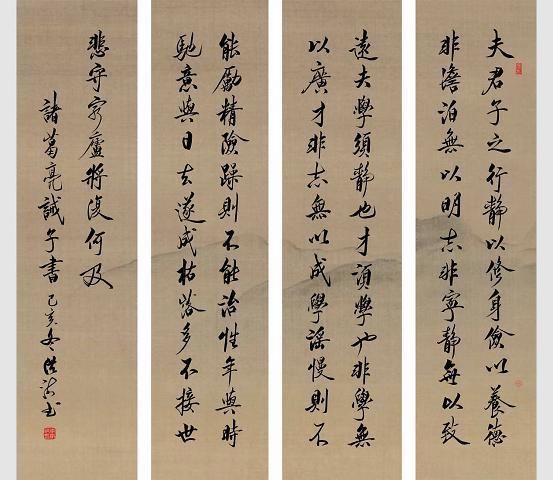 夫君子之行靜以修身儉以養德
非澹泊無以明志非寧靜無以致
遠夫學須靜也才須學也非學無
以廣才非志無以成學謡慢則不
能勵精險躁則不能治性年與時
馳意與日去遂成枯落多不接世
悲守穷廬將復何及
諸葛亮誡子書 己亥冬书